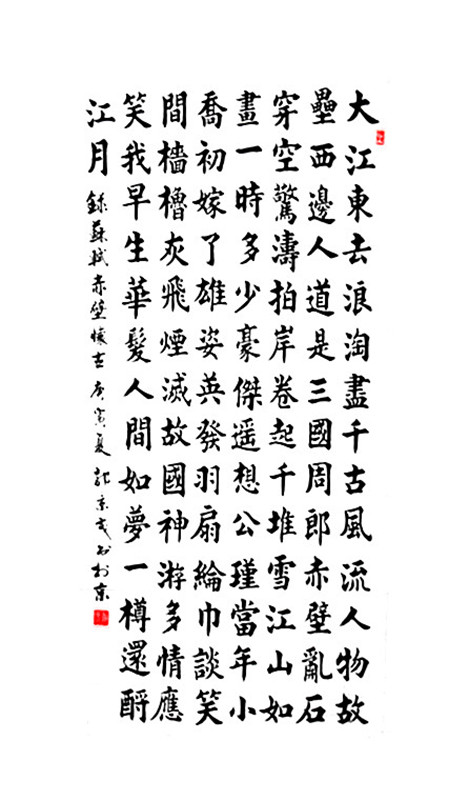 大江東去浪淘盡千古風流人物故
壘西邊人道是三國周郎赤壁亂石
穿空驚濤拍岸卷起千堆雪江山如
畫一時多少豪傑遥想公瑾當年小
喬初嫁了雄姿英發羽扇綸巾談笑
間檣櫓灰飛煙滅故國神游多情應
笑我早生華髮人間如夢一樽還酹
江月 錄蘇軾赤壁懷古庚寅夏